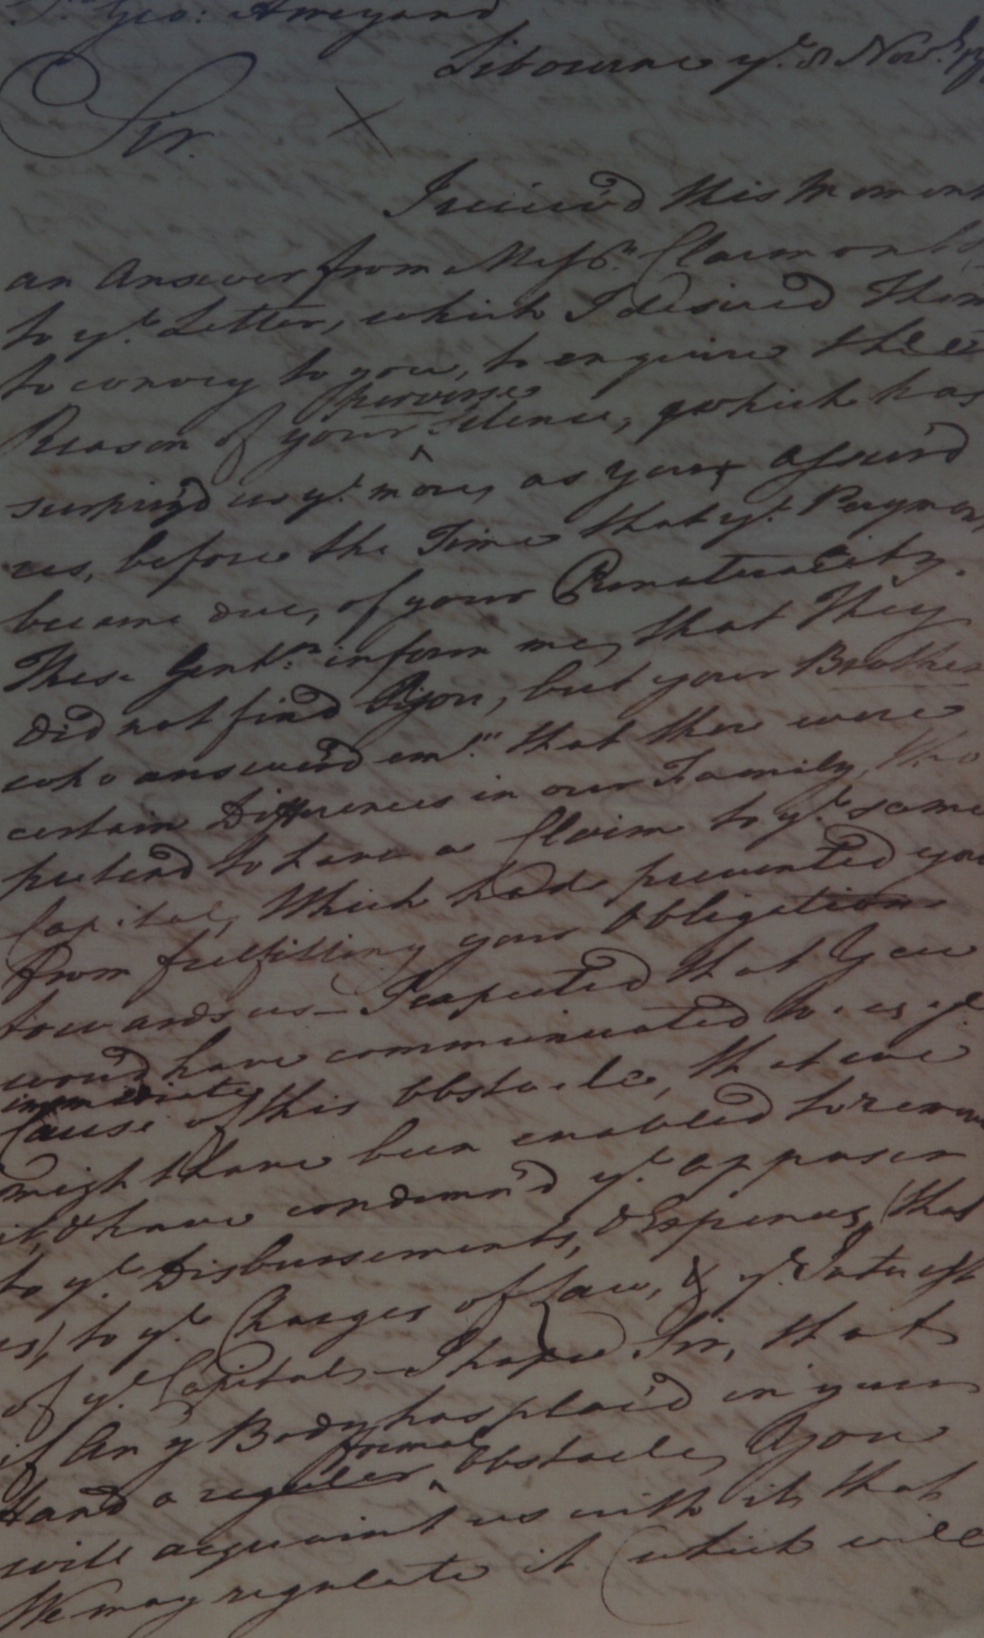 Geo: Amyand
Libourne ye. 8 Novr.
Sir.
I reciev'd this Moment
an Answer from Messrs. Clairmonts
to ye. Letter, which I desired Them
to convey to you, to enquire the
perverse
Reason of your Silence, which has
surpriz'd us ye. more, as you assur'd
us, before the Time that ye. Paymen
became due, of your Punctuality.
These Gentn. inform me, that They
did not find you, but your Brother
who answer'd em "that there were
certain Differences in our Family, who
pretend to have a Claim to ye. same
Capital, Which had prevented you
from fulfilling your Obligations
towards us - I expected that You
would have communicated to us ye.
immediate
Cause of this Obstacle, that we
might have been enabled to remove
it, & have condemn'd ye. opposer
to ye. Disbursements, & Expences, (that
is) to ye. Charges of Law, & ye. Interest
of ye. Capital. I hope Sir, that
if Any Body has plac'd in your
formal
Hand a regular Obstacle, you
will acquaint us with it, that
We may regulate it (which will